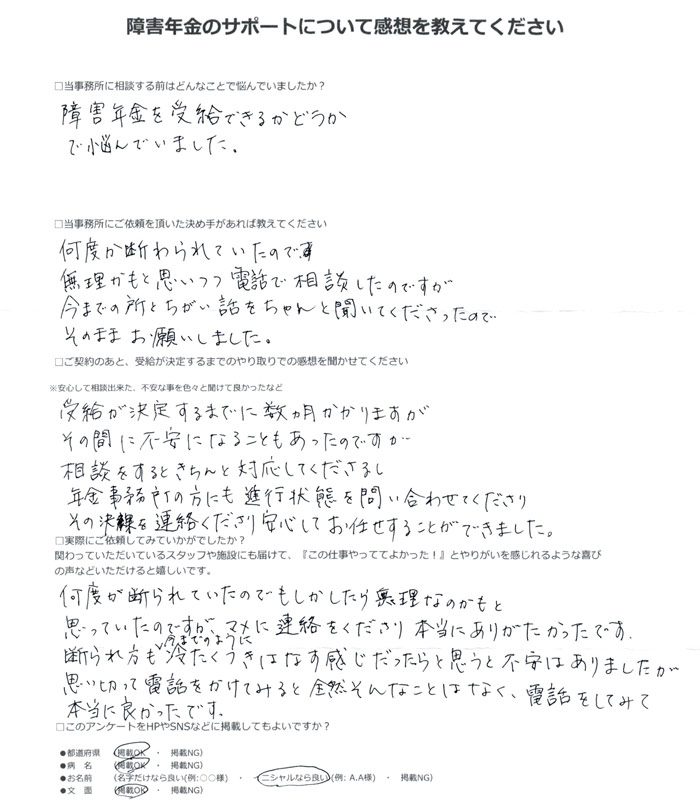 障害年金のサポートについて感想を教えてください
□当事務所に相談する前はどんなことで悩んでいましたか?
障害年金を受給できるかどうか
で悩んでいました。
□当事務所にご依頼を頂いた決め手があれば教えてください
何度か断わられていたのです
無理かもと思いつつ電話で相談したのですが
今までの所とちがい話をちゃんと聞いてくださったので
そのままお願いしました。
□ご契約のあと、受給が決定するまでのやり取りでの感想を聞かせてください
※安心して相談出来た、不安な事を色々と聞けて良かったなど
受給が決定するまでに数カ月かかりますが
その間に不安になることもあったのですが
相談をするときちんと対応してくださるし
年金事務所の方にも進行状態を問い合わせてくださり
その決を連絡くださり安心してお任せすることができました。
□実際にご依頼してみていかがでしたか?
関わっていただいているスタッフや施設にも届けて、『この仕事やっててよかった!』とやりがいを感じれるような喜び
の声などいただけると嬉しいです。
何度か断られていたのでもしかしたら無理なのかもと
思っていたのですが、マメに連絡をくださり本当にありがたかったです.
今までのように
断られ方も冷たくつきはなす感じだったらと思うと不安はありましたが
思い切って電話をかけてみると全然そんなことはなく、電話をしてみて
本当に良かったです.
□このアンケートをHPやSNSなどに掲載してもよいですか?
●都道府県 (掲載OK ・ 掲載NG)
●病 名 (掲載OK ・ 掲載NG)
●お名前 (名字だけなら良い(例:○○様) ・ ニシャルなら良い(例: A.A様) ・ 掲載NG)
●文 面 (掲載OK ・ 掲載NG)